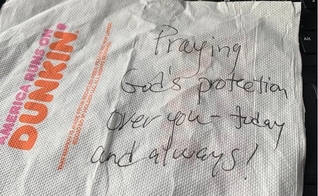 AMERICA RUNS ON
DUNKIN'
Praying
God's protection
over you - today
and always!